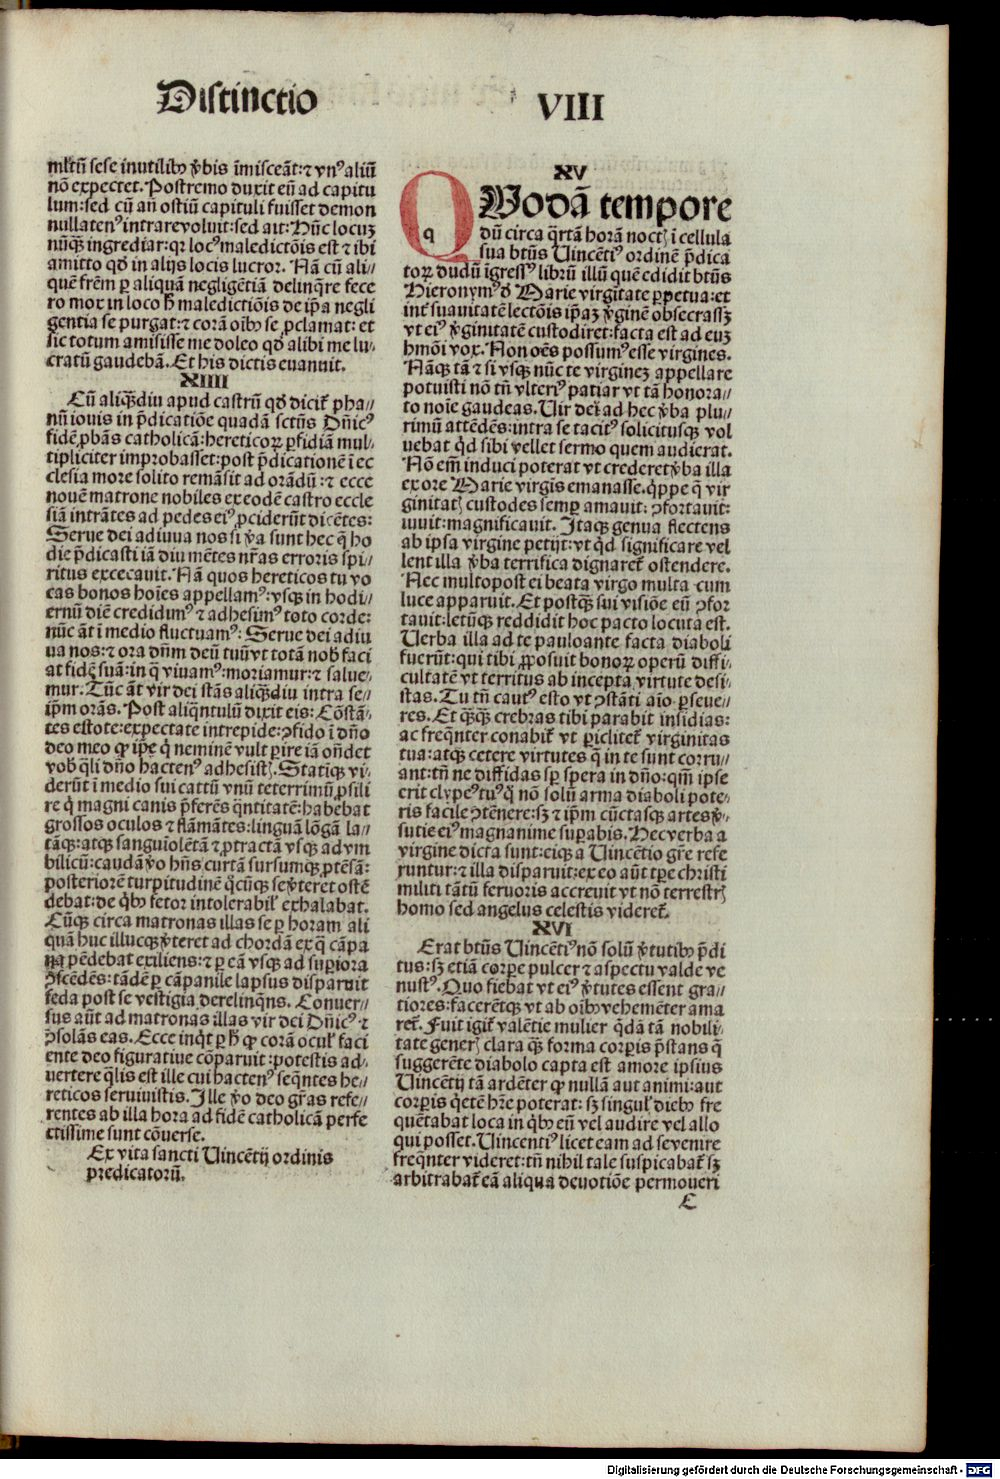 Distinctio VIII
mltū sese inutilibꝰ v̄bis īmisceāt: ⁊ vnꝰ aliū
nō expectet. Postremo duxit eū ad capitu
lum: sed cū an̄ ostiū capituli fuisset demon
nullatenꝰ intrare voluit: sed ait: Hūc locuȝ
nūqȝ ingrediar: qꝛ locꝰ maledictōis est ⁊ ibi
amitto qd̄ in alijs locis lucror. Nā cū ali⸗
quē frēm ꝑ aliquā negligētiā delinq̄re fece
ro mox in loco h̄ maledictiōis de ip̄a negli
gentia se purgat: ⁊ corā oībꝰ se ꝓclamat: et
sic totum amisisse me doleo qd̄ alibi me lu⸗
cratū gaudebā. Et his dictis euanuit.
XIIII
Cū aliqȝdiu apud castrū qd̄ dicit᷑ pha⸗
nū iouis in p̄dicatiōe quadā sctūs Dn̄icꝰ
fidē ꝓbās catholicā: hereticoꝝ ꝑfidiā mul⸗
tipliciter improbasset: post p̄dicationē ī ec
clesia more solito remāsit ad orādū: ⁊ ecce
nouē matrone nobiles ex eodē castro eccle
siā intrātes ad pedes eiꝰ ꝓciderūt dicētes:
Serue dei adiuua nos si v̄a sunt hec q̄ ho
die p̄dicasti iā diu mētes nr̄as erroris spi⸗
ritus excecauit. Nā quos hereticos tu vo
cas bonos hoīes appellamꝰ: vsqȝ in hodi⸗
ernū diē credidimꝰ ⁊ adhesimꝰ toto corde:
nūc āt ī medio fluctuamꝰ: Serue dei adiu
ua nos: ⁊ ora dn̄m deū tuū vt totā nob̄ faci
at fidē suā: in q̄ viuamꝰ: moriamur: ⁊ salue⸗
mur. Tūc āt vir dei stās aliqȝdiu intra se⸗
ip̄m orās. Post aliq̄ntulū dixit eis: Cōstā⸗
tes estote: expectate intrepide: ꝯfido ī dn̄o
deo meo ꝙ ip̄e q̄ neminē vult ꝑire iā on̄det
vob̄ q̄li dn̄o hactenꝰ adhesistꝭ. Statiꝫqȝ vi⸗
derūt ī medio sui cattū vnū teterrimū ꝓsili
re q̄ magni canis p̄ferēs q̄ntitatē: habebat
grossos oculos ⁊ flāmātes: linguā lōgā la⸗
tāqȝ: atqȝ sanguīolētā ⁊ ꝓtractā vsqȝ ad vm
bilicū: caudā v̄o hn̄s curtā sursumqȝ ꝓtēsā:
posteriorē turpitudinē q̄cūqȝ se v̄teret ostē
debat: de q̄bꝰ fetor intolerabil̄ exhalabat.
Cūqȝ circa matronas illas se ꝑ horam ali
quā huc illucqȝ v̄teret ad chordā ex q̄ cāpa
na pēdebat exiliens: ⁊ ꝑ eā vsqȝ ad suꝑiora
ꝯscēdēs: tādē ꝑ cāpanile lapsus disparuit
feda post se vestigia derelinq̄ns. Conuer⸗
sus aūt ad matronas illas vir dei Dn̄icꝰ ⁊
ꝯsolās eas. Ecce inq̄t ꝑ h̄ ꝙ corā ocul̄ faci
ente deo figuratiue cōparuit: potestis ad⸗
uertere q̄lis est ille cui hactenꝰ seq̄ntes he⸗
reticos seruiuistis. Ille v̄o deo gr̄as refe⸗
rentes ab illa hora ad fidē catholicā perfe
ctissime sunt cōuerse.
Ex vita sancti Uincētij ordinis
predicatorū.
XV
QUodā tempore
q
dū circa q̄rtā horā noctꝭ ī cellula
sua bt̄us Uincētiꝰ ordinē p̄dica
toꝝ dudū īgressꝰ librū illū quē edidit bt̄us
Hieronymꝰ d̄ Marie virgītate ꝑpetua: et
int̄ suauitatē lectōis ip̄aȝ v̄ginē obsecrassȝ
vt eiꝰ v̄ginitatē custodiret: facta est ad euȝ
hmōi vox. Non oēs possumꝰ esse virgines.
Nāqȝ tā ⁊ si vsqȝ nūc te virgineȝ appellare
potuisti nō tn̄ vlteriꝰ patiar vt tā honora⸗
to noīe gaudeas. Uir dei ad hec v̄ba plu⸗
rimū attēdēs: intra se tacitꝰ solicitusqȝ vol
uebat qd̄ sibi vellet sermo quem audierat.
Nō em̄ induci poterat vt crederet v̄ba illa
ex ore Marie virgīs emanasse. q̄ppe q̄ vir
ginitatꝭ custodes semꝑ amauit: ꝯfortauit:
iuuit: magnificauit. Itaqȝ genua flectens
ab ipsa virgine petijt: vt qd̄ significare vel
lent illa v̄ba terrifica dignaret᷑ ostendere.
Nec multopost ei beata virgo multa cum
luce apparuit. Et postqȝ sui visiōe eū ꝯfor
tauit: letūqȝ reddidit hoc pacto locuta est.
Uerba illa ad te pauloante facta diaboli
fuerūt: qui tibi ꝓposuit bonoꝝ operū diffi⸗
cultatē vt territus ab incepta virtute desi⸗
stas. Tu tn̄ cautꝰ esto vt ꝯstāti aīo ꝑseue⸗
res. Et qȝqȝ crebras tibi parabit insidias:
ac freq̄nter conabit᷑ vt ꝑiclitet᷑ virginitas
tua: atqȝ cetere virtutes q̄ in te sunt corru⸗
ant: tn̄ ne diffidas sꝫ spera in dn̄o: qm̄ ipse
erit clypeꝰ tuꝰ q̄ nō solū arma diaboli pote⸗
ris facile ꝯtēnere: sȝ ⁊ ip̄m cūctasqȝ artes v̄⸗
sutie eiꝰ magnanime suꝑabis. Hec verba a
virgine dicta sunt: eiqȝ a Uincētio gr̄e refe
runtur: ⁊ illa disparuit: ex eo aūt tꝑe christi
militi tātū feruoris accreuit vt nō terrestrꝭ
homo sed angelus celestis videret᷑.
XVI
Erat bt̄us Uincētiꝰ nō solū v̄tutibꝰ p̄di
tus: sȝ etiā corꝑe pulcer ⁊ aspectu valde ve
nustꝰ. Quo fiebat vt eiꝰ v̄tutes essent gra⸗
tiores: facerētqȝ vt ab oībꝰ vehemēter ama
ret᷑. Fuit igit᷑ valētie mulier q̄dā tā nobili⸗
tate generꝭ clara qȝ forma corꝑis p̄stans q̄
suggerēte diabolo capta est amore ipsius
Uincētij tā ardēter ꝙ nullā aut animi: aut
corꝑis q̄etē hr̄e poterat: sȝ singul̄ diebꝰ fre
quētabat loca in q̄bꝰ eū vel audire vel allo
qui posset. Uincentiꝰ licet eam ad se venire
freq̄nter videret: tn̄ nihil tale suspicabat᷑ sȝ
arbitrabat᷑ eā aliqua deuotiōe permoueri
E
Digitalisierung gefördert durch die Deutsche Forschungsgemeinschaft - DFG